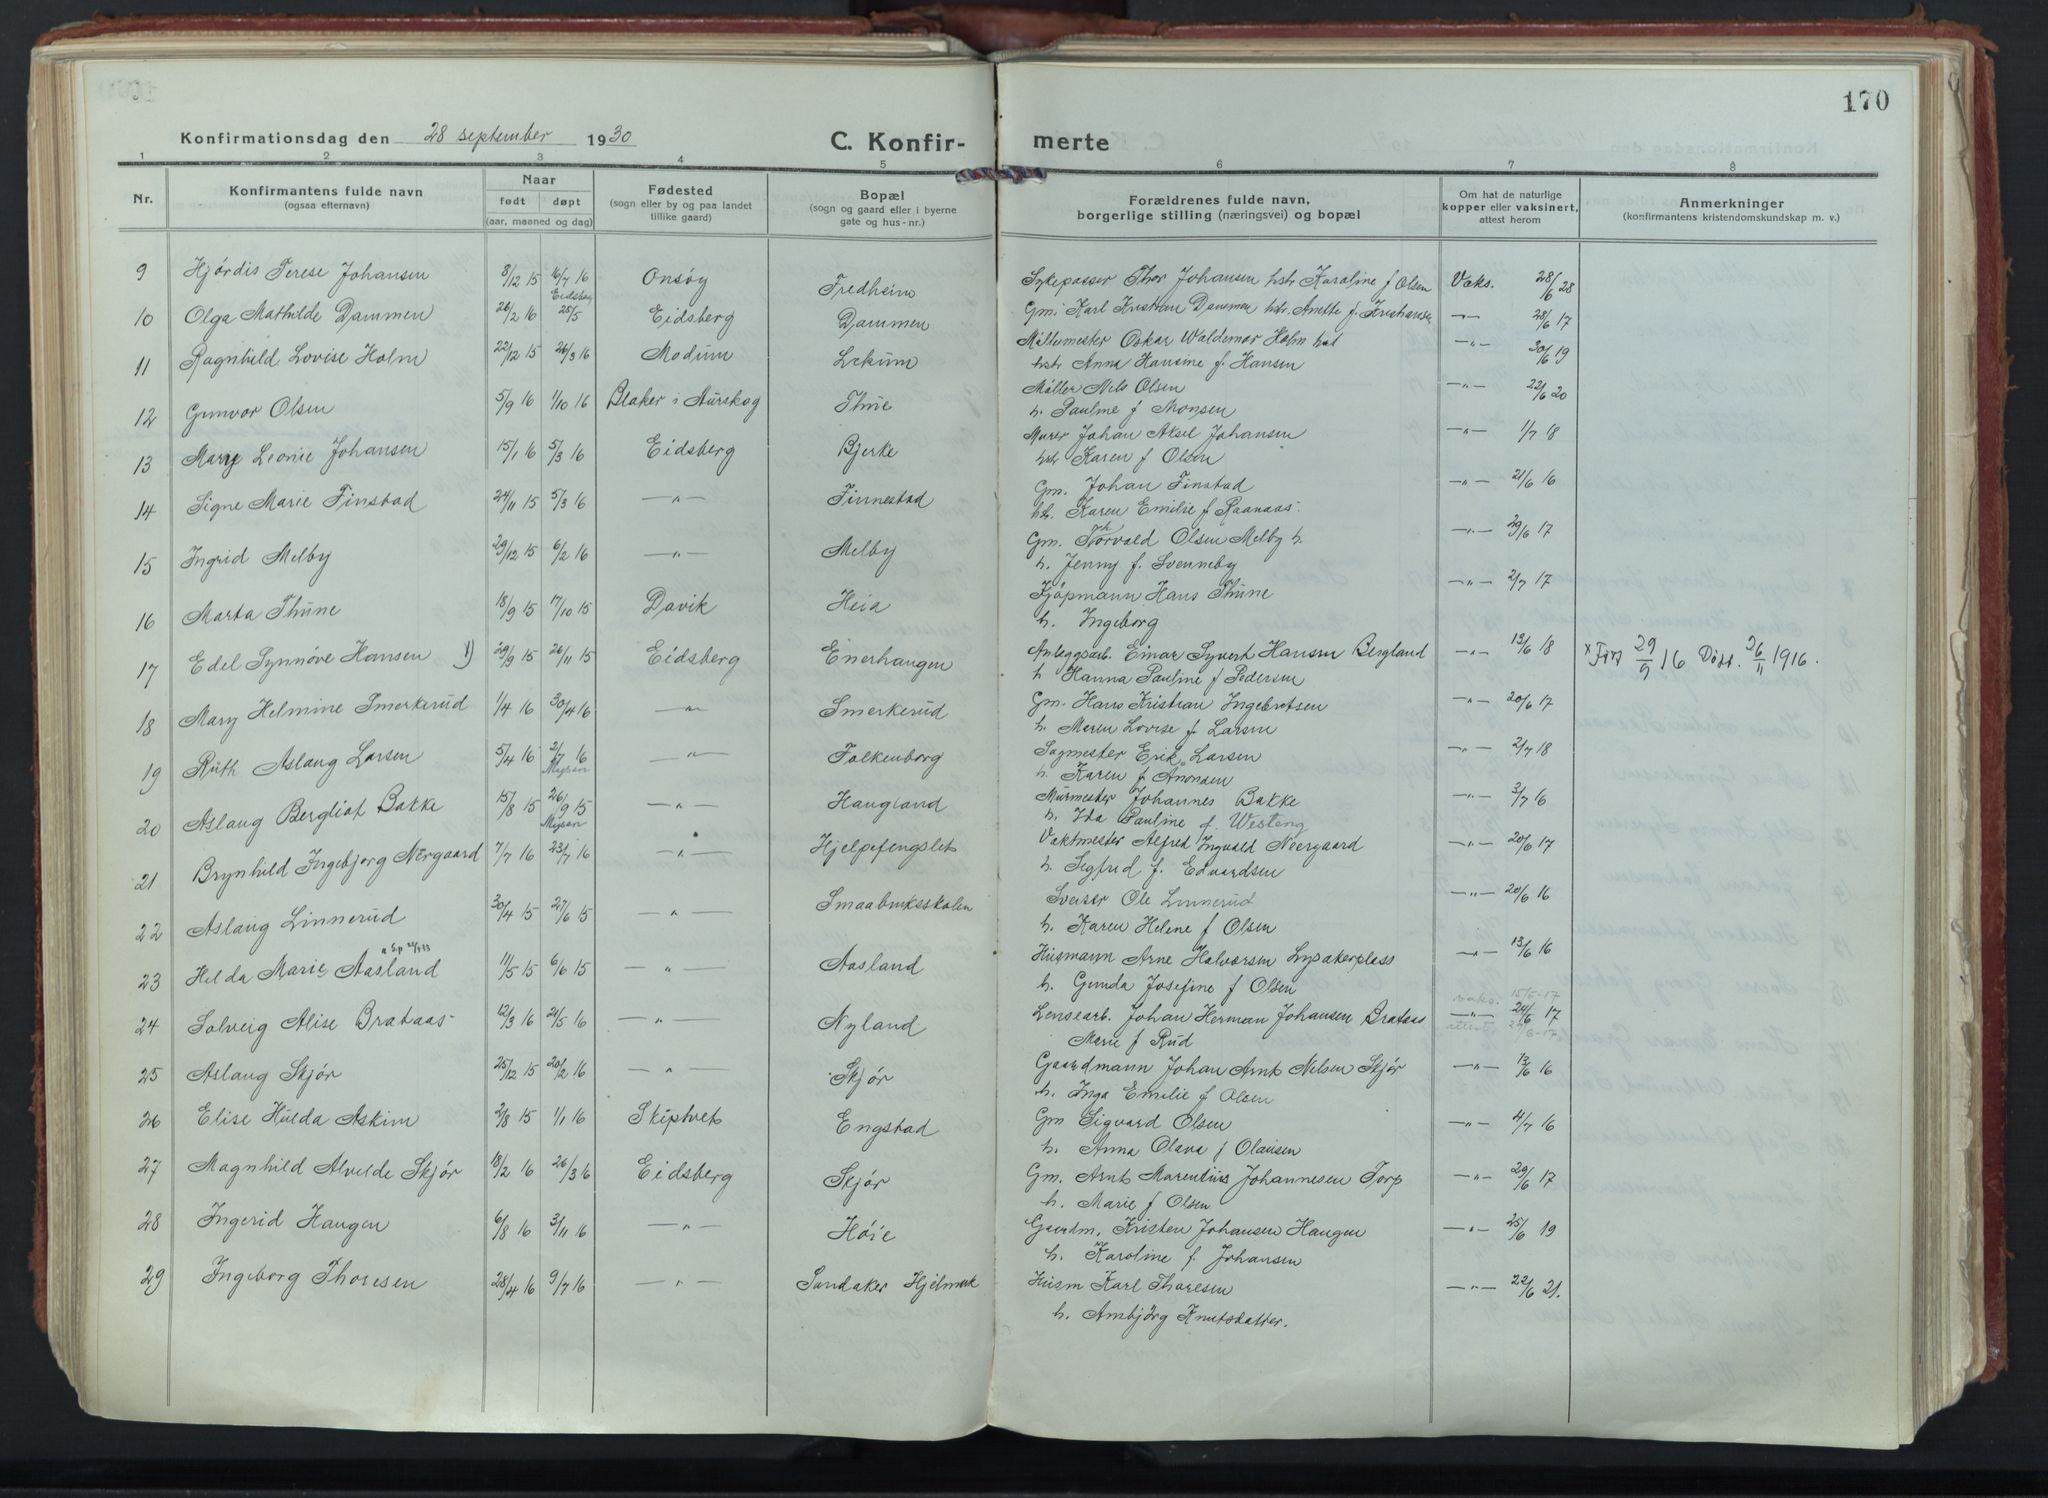 170
Konfirmationsdag den 28 september 1930 C. Konfir- merte
1 2 3 4 5 6 7 8
Nr. Konfirmantens fulde navn (ogsaa efternavn) Naar født døpt (aar, maaned og dag) Fødested (sogn eller by og paa landet tillike gaard) Bopæl (sogn og gaard eller i byerne gate og hus-nr.) Forældrenes fulde navn, borgerlige stilling (næringsvei) og bopæl Om hat de naturlige kopper eller vaksinert, attest herom Anmerkninger (konfirmantens kristendomskundskap m. v.)
9 Hjørdis Terese Johansen 8/12 15 16/7 16 Onsøy Fredheim Sykepasser Thor Johansen hstr Karoline f Olsen Vaks. 28/6 28
Eidsberg
10 Olga Mathilde Dammen 26/2 16 25/5 Eidsberg Dammen Gm. Karl Kristian Dammen hstr. Anette f. Kristiansen —"— 28/6 17
11 Ragnhild Lovise Holm 22/12 15 26/3 16 Modum Lekum Møllemester Oskar Waldemar Holm —"— 30/6 19
hstr Anna Hansine f. Hansen
12 Gunvor Olsen 5/9 16 1/10 16 Blaker i Aurskog Thue Møller Nils Olsen —"— 22/6 20
h. Pauline f Monsen
13 Mary Leonie Johansen 15/1 16 5/3 16 Eidsberg Bjerke Murer Johan Aksel Johansen —"— 1/7 18
hstr Karen f Olsen
14 Signe Marie Finstad 24/11 15 5/3 16 —"— Finnestad Gm. Johan Finstad —"— 21/6 16
hst. Karen Emilie f Raanaas.
15 Ingrid Melby 29/12 15 6/2 16 —"— Melby Gm. Thorvald Olsen Melby h. —"— 29/6 17
h. Jenny f. Svenneby
16 Marta Thune 18/9 15 17/10 15 Davik Heia Kjøpmann Hans Thune —"— 2/7 17
h. Ingeborg
17 Edel Synnøve Hansen 1) 29/9 15 26/11 15 Eidsberg Enerhaugen Anleggsarb. Einar Syvert Hansen Bergland —"— 13/6 18 x Född 29/9 16 Döpt. 26/11 1916.
h Hanna Pauline f Pedersen
18 Mary Helmine Smerkerud 1/4 16 30/4 16 —"— Smerkerud Gm. Hans Kristian Ingebretsen —"— 20/6 17
h. Maren Lovise f. Larsen
19 Ruth Aslaug Larsen 5/4 16 2/7 16 —"— Falkenborg Sagmester Erik Larsen —"— 2/7 18
Mysen h. Karen f Anonsen
20 Aslaug Bergliot Bakke 15/8 15 26/9 15 —"— Haugland Murmester Johannes Bakke —"— 3/7 16
Mysen h. Ida Pauline f. Westeng
21 Brynhild Ingebjørg Nergaard 7/7 16 23/7 16 —"— Hjelpefengslet Vaktmester Alfred Ingvald Neergaard —"— 20/6 17
h. Segfrid f. Edvardsen
22 Aslaug Linnerud 30/4 15 27/6 15 —"— Smaabruksskolen Sveiser Ole Linnerud —"— 20/6 16
h. Karen Helene f Olsen
23 Helda Marie Aasland 11/5 15 6/6 15 —"— Aasland Husmann Arne Halvorsen Lysakerplass —"— 13/6 16
h. Gunda Josefine f Olsen
vaks. 15/6-17
24 Solveig Alise Brataas 12/3 16 21/5 16 —"— Nyland Lensearb. Johan Herman Johansen Brataas —"— 24/6 17
Marie f Rud attest 24/6-17.
25 Aslaug Skjør 25/12 15 20/2 16 —"— Skjør Gaardmann Johan Arnt Nilsen Skjør —"— 13/6 16
h. Inga Emilie f Olsen
26 Elise Hulda Askim 2/8 15 1/1 16 Skiptvet Engstad Gm Sigvard Olsen —"— 4/7 16
h. Anna Olava f Olausen
27 Magnhild Alvilde Skjør 18/2 16 26/3 16 Eidsberg Skjør Gm. Arnt Marentius Johannesen Torp —"— 29/6 17
h. Marie f Olsen
28 Ingerid Haugen 6/8 16 3/11 16 —"— Høie Gaardm. Kristen Johansen Haugen —"— 25/6 19
h. Karoline f. Johansen
29 Ingeborg Thoresen 28/4 16 9/7 16 —"— Sandaker Hjelmark Husm Karl Thoresen —"— 22/6 21.
h. Ambjörg Knutsdatter.